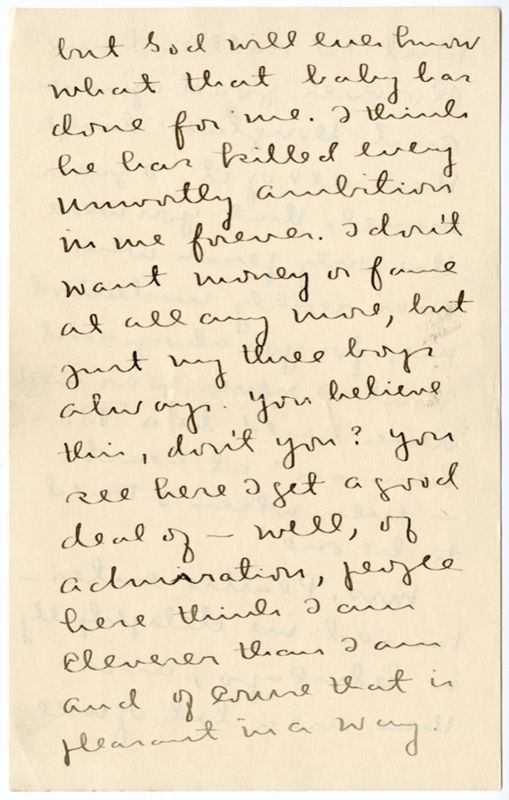 but God will ever know
what that baby has
done for me. I think
he has killed every
unworthy ambition
in me forever. I don't
want money or fame
at all any more, but
just my three boys
always. You believe
this, don't you? You
see here I get a good
deal of – well, of
admiration, people
here think I am
cleverer than I am
and of course that is
pleasant in a way.